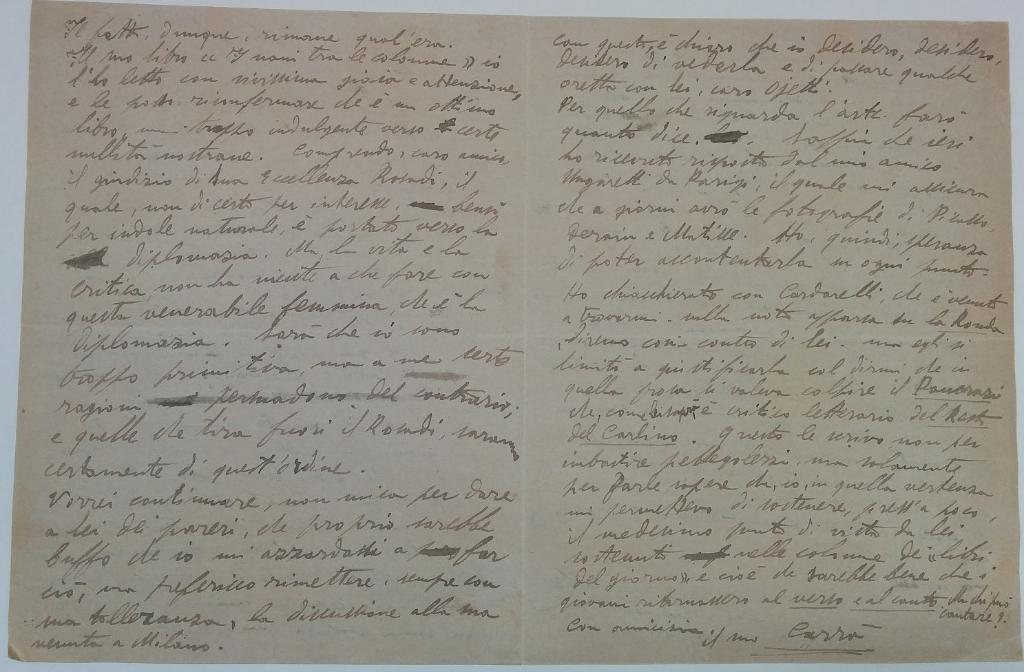 Il fatto, dunque, rimane qual'era.
Il suo libro « I nani tra le colonne » io
l'ho letto con vivissima gioia e attenzione,
e le posso riconfermare che è un ottimo
libro, ma troppo indulgente verso certe
nullità nostrane. Comprendo, caro amico
il giudizio di Sua Eccellenza Rosadi, il
quale, non di certo per interesse, bensì
per indole naturale, è portato verso la
diplomazia. Ma la vita e la
critica non ha niente a che fare con
questa venerabile femmina, che è la
diplomazia. Sarà che io sono
troppo primitivo, ma a me certe
ragioni persuadono del contrario;
e quelle che tira fuori il Rosadi, saranno
certamente di quest'ordine.
Vorrei continuare, non mica per dare
a lei dei pareri, che proprio sarebbe
buffo che io mi azzardassi a far
ciò, ma preferisco rimettere, sempre con
sua tolleranza, la discussione alla sua
venuta a Milano.
Con questo, è chiaro che io desidero, desidero,
desidero di vederla e di passare qualche
oretta con lei, caro Ojetti.
Per quello che riguarda l'arte farò
quanto dice. Sappia che ieri
ho ricevuto risposta dal mio amico
Ungaretti da Parigi, il quale mi assicura
che a giorni avrò le fotografie di Picasso,
Derain e Matisse. Ho, quindi, speranza
di poter accontentarla in ogni punto.
Ho chiacchierato con Cardarelli, che è venuto
a trovarmi, sulla nota apparsa su la Ronda
diremo così contro di lei, ma egli si
limitò a giustificarla col dirmi che in
quella prosa si voleva colpire il Pancrazi
che, è critico letterario del Resto
del Carlino. Questo le scrivo non per
imbastire pettegolezzi, ma solamente
per farle sapere che, io, in quella vertenza
mi permettevo di sostenere, press'a poco,
il medesimo punto di vista da lei
sostenuto nelle colonne dei « libri
del giorno » e cioè che sarebbe bene che i
giovani ritornassero al verso e al canto. Ma chi può
cantare?
Con amicizia il suo Carrà